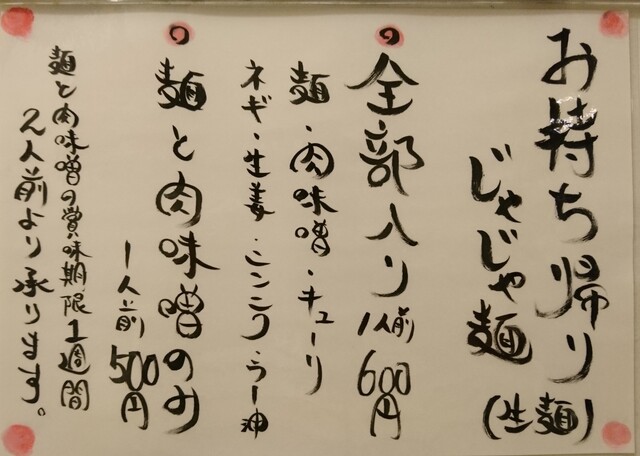 お持ち帰り
じゃじゃ麺
(生麺)
◎全部入り 1人前 600円
麺・肉味噌・キューリ
ネギ・生姜・ニンニク・ラー油
◎麺と肉味噌のみ
1人前 500円
麺と肉味噌の賞味期限1週間
2人前より承ります。